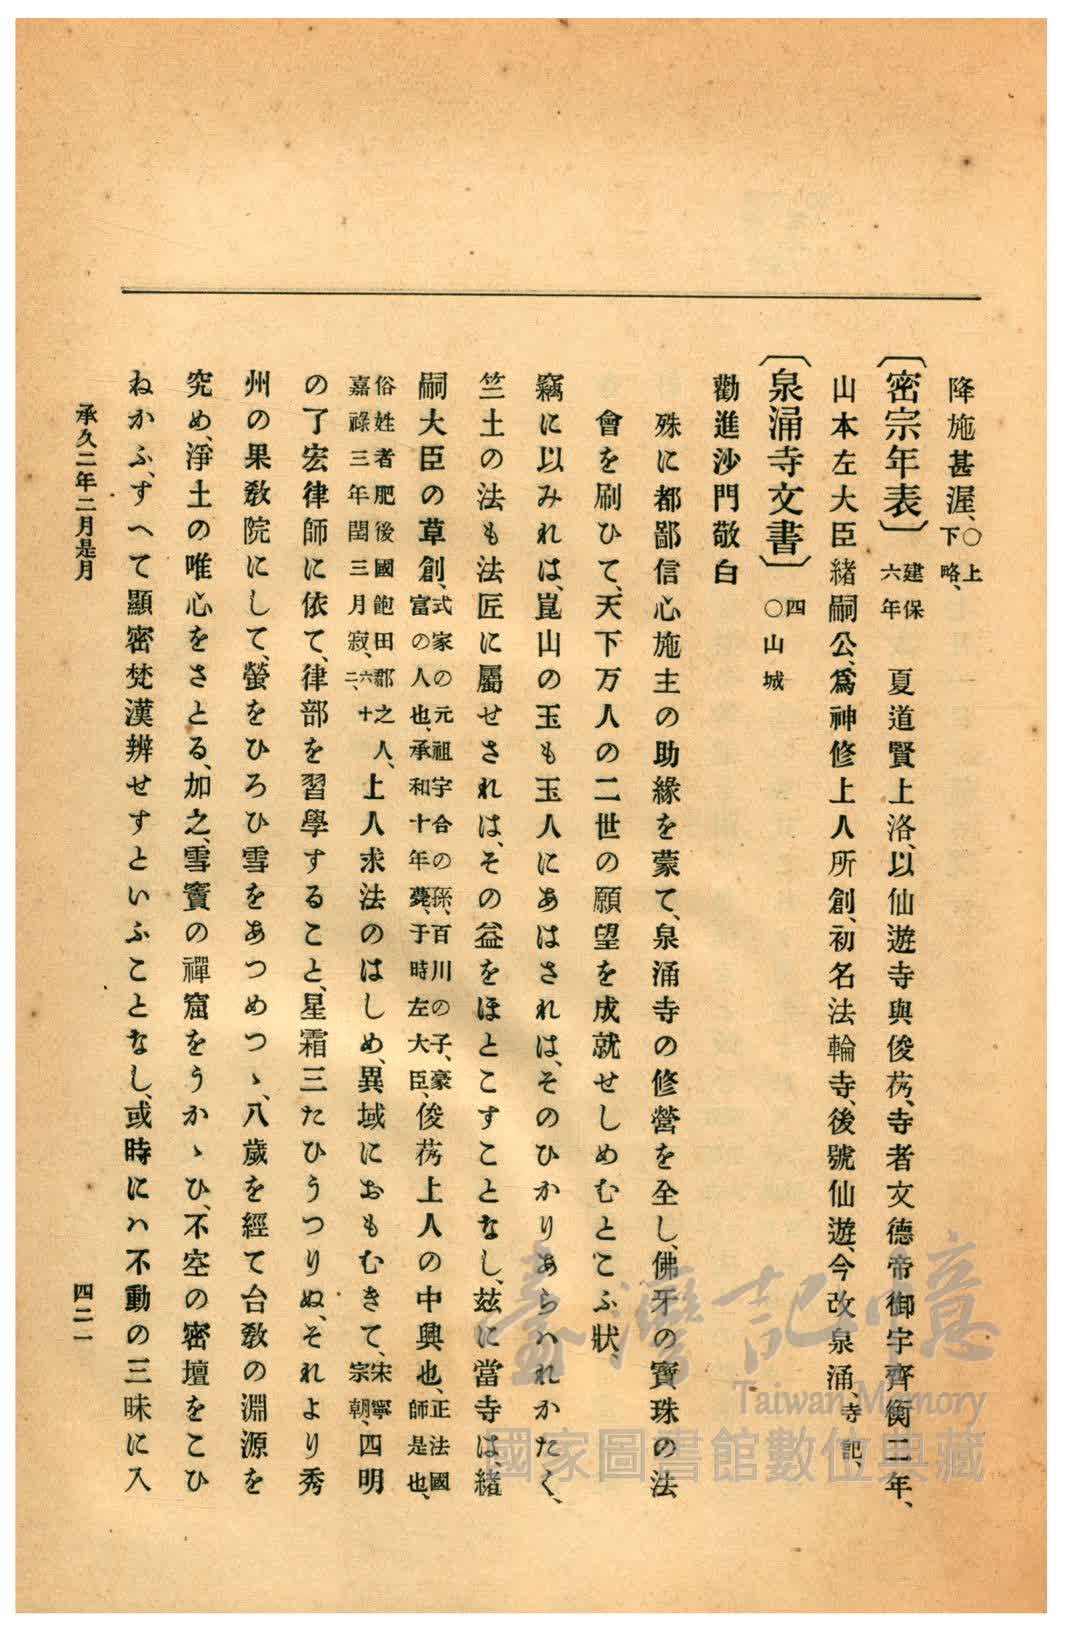 降施甚渥、○上下略、
〔密宗年表〕建保六年　夏道賢上洛、以仙遊寺與俊芿、寺者文德帝御宇齊衡二年、
山本左大臣緖嗣公、爲神修上人所創、初名法輪寺、後號仙遊、今改泉涌、寺記、
〔泉涌寺文書〕四○山城
勸進沙門敬白
殊に都鄙信心施主の助緣を蒙て、泉涌寺の修營を全し、佛牙の寶珠の法
會を刷ひて、天下万人の二世の願望を成就せしめむとこふ狀、
竊に以みれは、崑山の玉も玉人にあはされは、そのひかりあらハれかたく、
竺土の法も法匠に屬せされは、その益をほとこすことなし、玆に當寺は、緖
嗣大臣の草創、式家の元祖宇合の孫、百川の子、豪富の人也、承和十年薨、于時左大臣、俊芿上人の中興也、正法國師是也、
俗姓者肥後國飽田郡之人、嘉祿三年閏三月寂、六十二、上人求法のはしめ、異域におもむきて、宋寧宗朝、四明
の了宏律師に依て、律部を習學すること、星霜三たひうつりぬ、それより秀
州の果敎院にして、螢をひろひ雪をあつめつゝ、八歲を經て台敎の淵源を
究め、淨土の唯心をさとる、加之、雪竇の禪窟をうかゝひ、不空の密壇をこひ
ねかふ、すへて顯密梵漢辨せすといふことなし、或時にハ不動の三昧に入
承久二年二月是月
四二一
臺灣記憶
Taiwan Memory
國家圖書館數位典藏